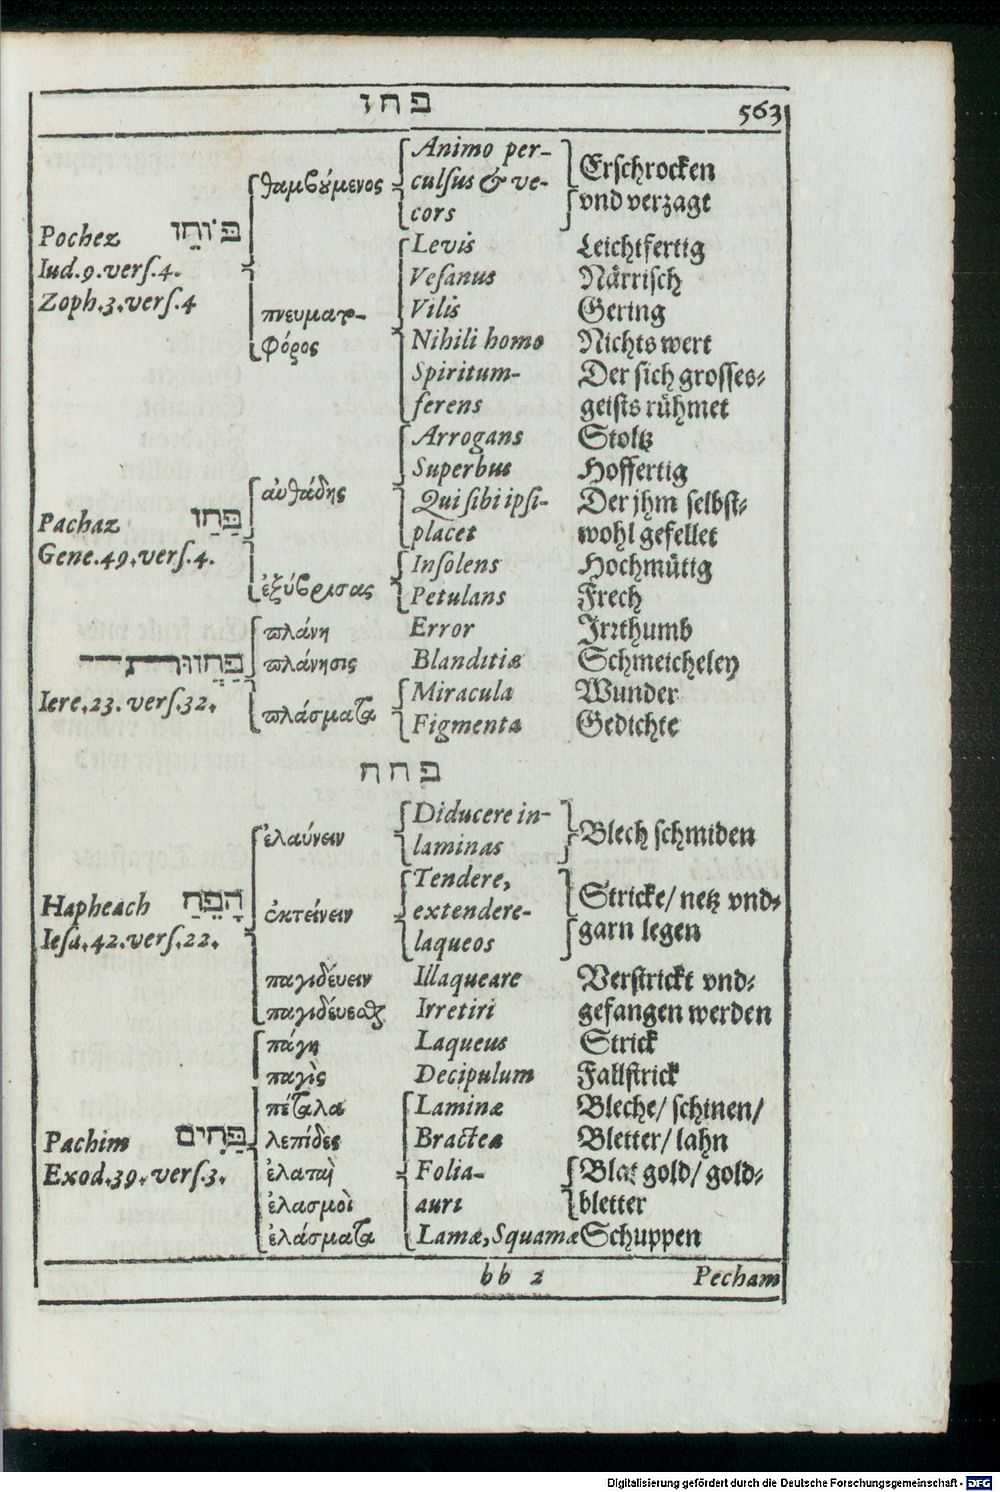 פחז 563
θαμβούμενος Animo per-
culsus & ve-
cors
Erschrocken
vnd verzagt
Pochez פּוֹחֵז
Iud.9.vers.4.
Zoph.3.vers.4
Levis Leichtfertig
Vesanus Närrisch
πνευματο- Vilis Gering
φόρος Nihili homo Nichts wert
Spiritum- Der sich grosses-
ferens geists rühmet
Arrogans Stoltz
Superbus Hoffertig
Pachaz פַּחַז
Gene.49.vers.4.
αὐθάδης Qui sibi ipsi- Der jhm selbst-
placet wohl gefellet
Insolens Hochmütig
ἐξύβρισας Petulans Frech
πλάνη Error Jrrthumb
פַּחֲזוּת
Iere.23.vers.32.
πλάνησις Blanditiæ Schmeicheley
Miracula Wunder
πλάσματα Figmenta Gedichte
פחח
ἐλαύνειν Diducere in-
laminas
Blech schmiden
Hapheach הָפֵחַ
Iesa.42.vers.22.
ἐκτείνειν Tendere,
extendere-
laqueos
Stricke/ netz vnd-
garn legen
παγιδέυειν Illaqueare Verstrickt vnd-
παγιδέυεσθ Irretiri gefangen werden
πάγη Laqueus Strick
παγὶς Decipulum Fallstrick
Pachim פַּחִים
Exod.39.vers.3.
πέταλα Laminæ Bleche/ schinen/
λεπίδες Bracteæ Bletter/ lahn
ἐλαταὶ Folia- Blat gold/ gold-
ἐλασμοὶ auri bletter
ἐλάσματα Lamæ,Squamæ Schuppen
bb 2 Pecham
Digitalisierung gefördert durch die Deutsche Forschungsgemeinschaft - DFG